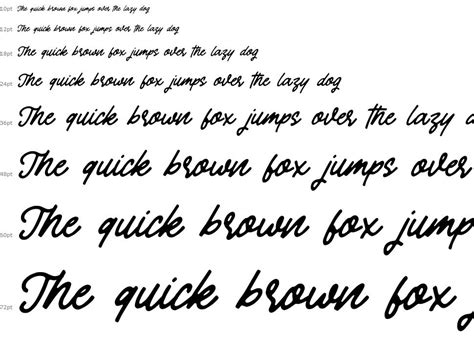 10pt The quick brown fox jumps over the lazy dog
12pt The quick brown fox jumps over the lazy dog
18pt The quick brown fox jumps over the lazy dog
24pt The quick brown fox jumps over the lazy dog
36pt The quick brown fox jumps over the lazy d
48pt The quick brown fox jumps over
60pt The quick brown fox jump
72pt The quick brown fox j